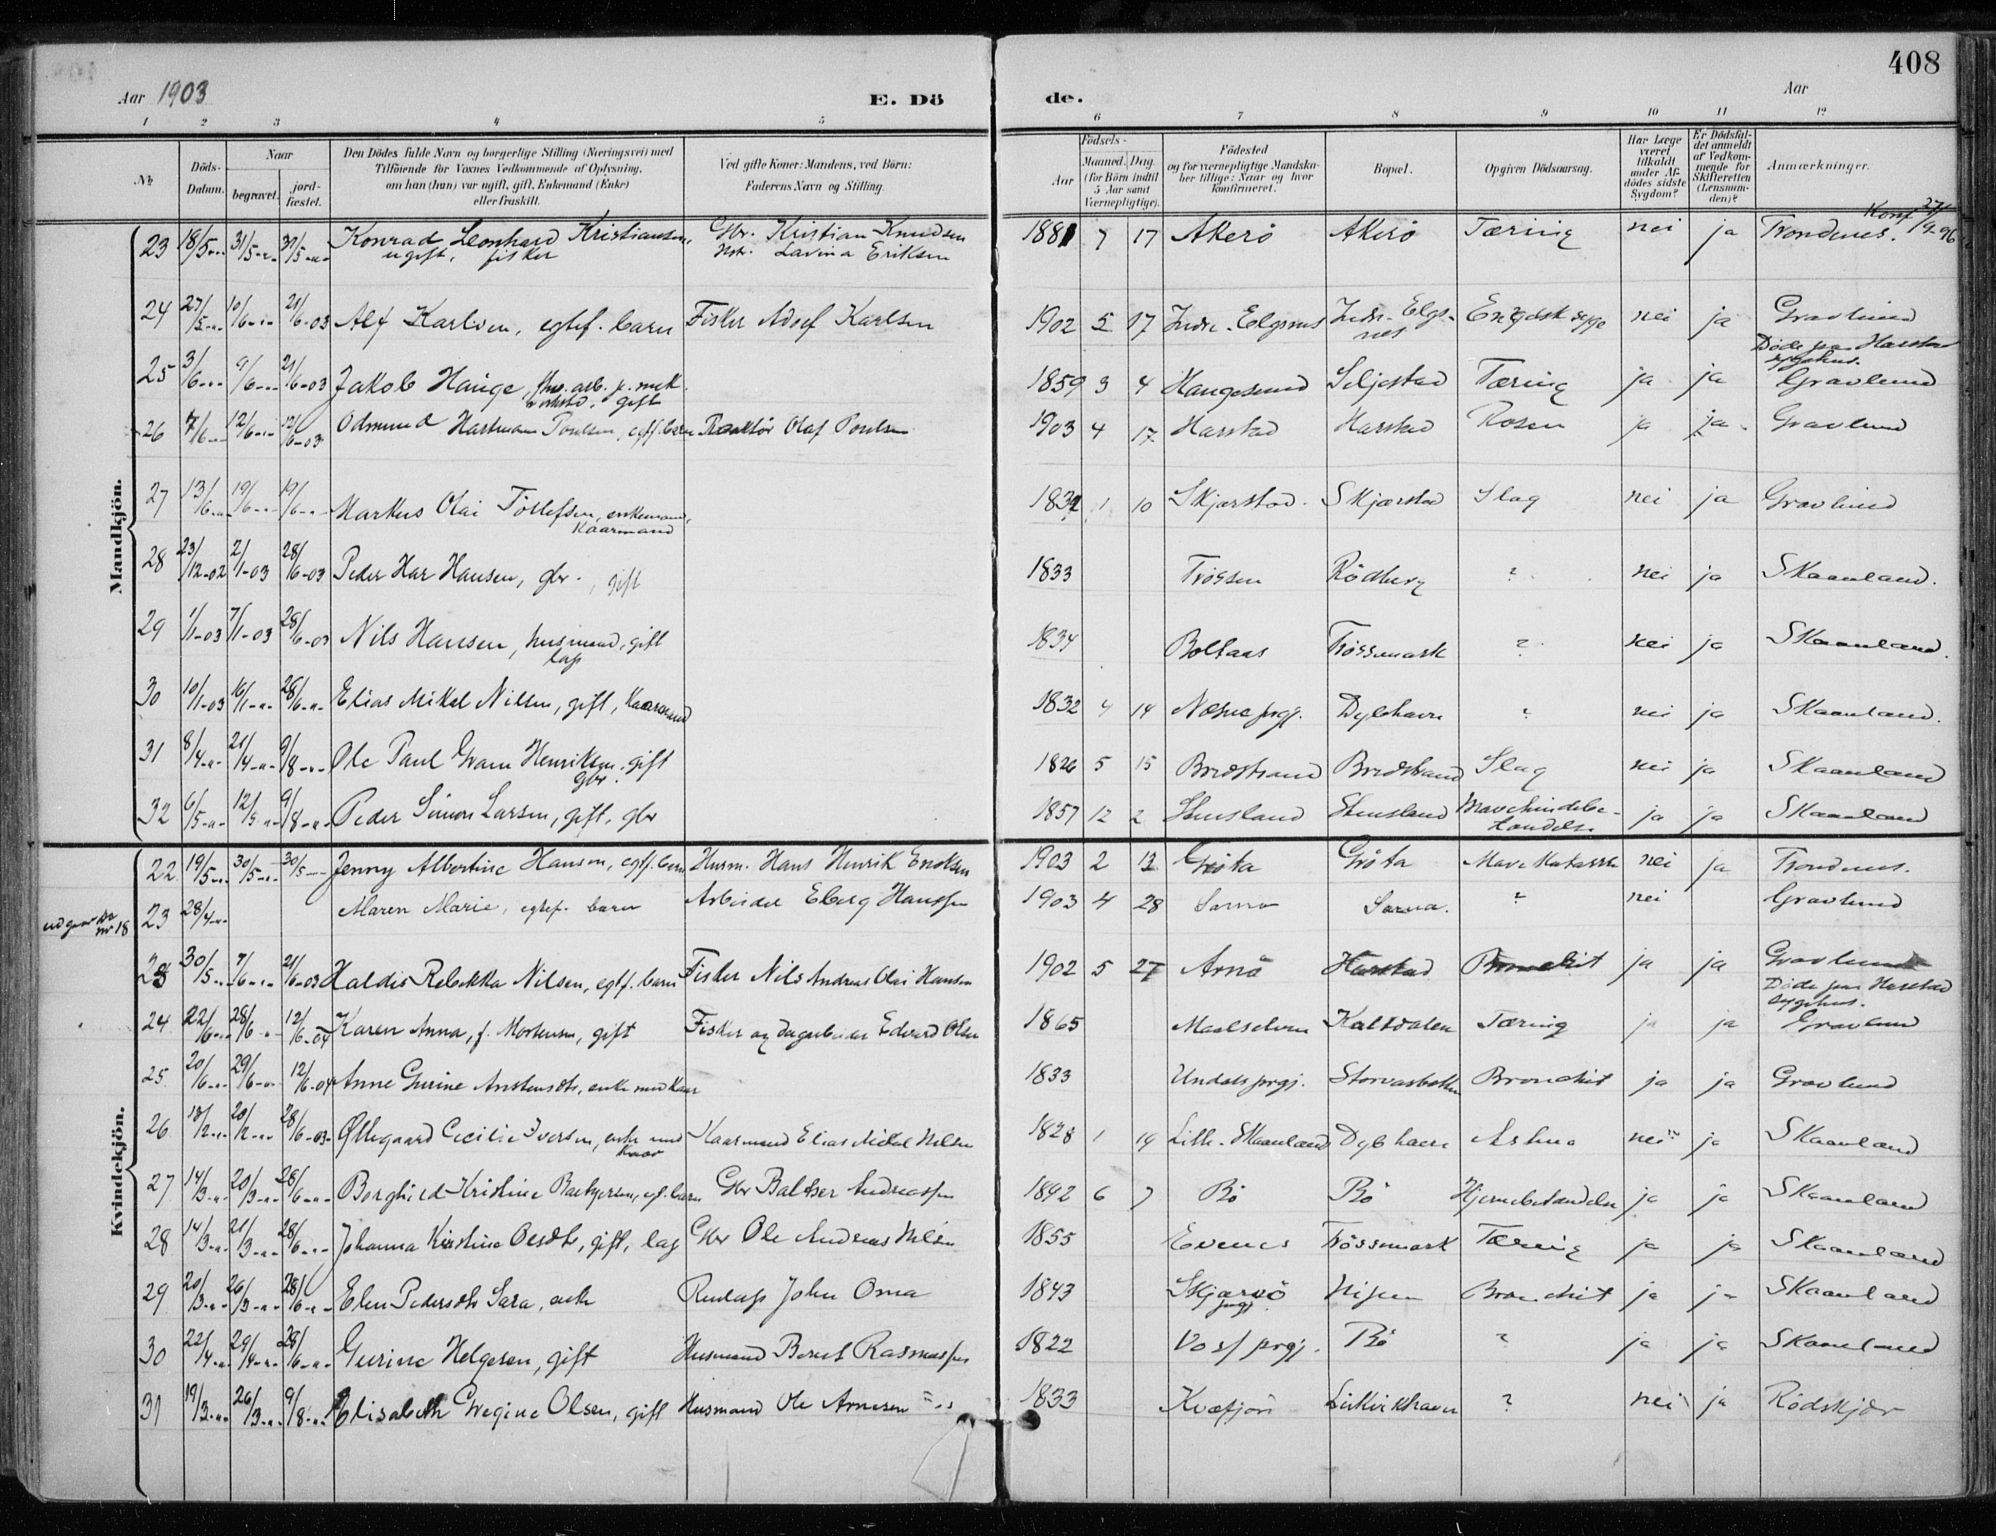 408
Aar 1903
E. Dö de.
Aar
1 2 3 4 5 6 7 8 9 10 11 12
No.
Döds-Datum.
Naar
begravet.
jord-fæstet.
Den Dödes fulde Navn og borgerlige Stilling (Næringsvei) med
Tilföiende for Voxnes Vedkommende af Oplysning,
om han (hun) var ugift, gift, Enkemand (Enke)
eller fraskilt.
Ved gifte Koner: Mandens, ved Börn:
Faderens Navn og Stilling.
Födsels-
Aar
Maaned. Dag.
(for Börn indtil
5 Aar samt
Værnepligtige).
Födested
og for værnepligtige Mandska-
ber tillige: Naar og hvor
konfirmeret.
Bopæl.
Opgiven Dödsaarsag.
Har Læge
været
tilkaldt
under Af-
dödes sidste
Sygdom?
Er Dödsfal-
det anmeldt
af Vedkom-
mende for
Skifteretten
(Lensman-
den)?
Anmærkninger.
Mandkjön.
23 18/5 31/5 31/5 Konrad Leonhard Kristiansen, Gbr. Kristian Knudsen 1881 7 17 Akerö Akerö Tæring nei ja Trondenes. Konf 27/9-96
ugift, fisker Lavina Eriksen
24 27/5 10/6 21/6-03 Alf Karlsen, egtef. barn Fisker Adolf Karlsen 1902 5 17 Indre-Elgsnes Indre-Elgsnes Engelsk syge nei ja Gravlund
25 3/6 9/6 21/6-03 Jakob Hauge, arb. p. mek. verksted, gift 1859 3 4 Haugesund Seljestad Tæring ja ja Döde paa Harstad sygehus. Gravlund
26 7/6 12/6 12/6-03 Odmund Hartman Poulsen, egtf. barn Redaktör Olaf Poulsen 1903 4 17 Harstad Harstad Rosen ja ja Gravlund
27 13/6 19/6 19/6 Markus Olai Töllefsen, enkemand, Kaarmand 1832 1 10 Skjærstad Skjærstad Slag nei ja Gravlund
28 23/12-02 2/1-03 28/6-03 Peder Har Hansen, gbr., gift 1833 Trössen Rödberg ? nei ja Skaanland.
29 1/1-03 7/1-03 28/6-03 Nils Hansen, husmand, gift lap 1834 Boltaas Trössemark ? nei ja Skaanland.
30 10/1-03 16/1 28/6 Elias Mikal Nilsen, gift, Kaarmand 1832 4 14 Næsne prgj. Dylshavn ? nei ja Skaanland.
31 8/4 21/4 9/8 Ole Paul Gram Henriksen, gift gbr. 1826 5 15 Bredstrand Bredstrand Slag nei ja Skaanland
32 6/5 12/5 9/8 Peder Simon Larsen, gift, gbr 1857 12 2 Stensland Stensland ja ja Skaanland
Kvindekjön.
22 19/5 30/5 30/5 Jenny Albertine Hansen, egtf. barn Husm. Hans Henrik Eriksen 1903 2 13 Gröta Gröta Mave Katarrh nei ja Trondenes.
udgaar nr 18 23 28/4 Maren Marie, egtef. barn Arbeider Eberg Hanssen 1903 4 28 Sama Sama. ? nei Gravlund
23 30/5 7/6 21/6-03 Haldis Rebekka Nilsen, egtf. barn Fisker Nils Andreas Olai Hansen 1902 5 27 Arnö Harstad Bronchit ja ja Gravlund
24 22/6 28/6 12/6-04 Karen Anna, f. Mortensen, gift Fisker og dagarbeider Edvard Olsen 1865 Maalselven Kaltdalen Tæring ja ja Döde paa Harstad sygehus. Gravlund
25 20/6 29/6 12/6-04 Anne Gurine Anstensdtr., enke med kaar 1833 Undals prgj. Storvasbotten Bronchit ja ja Gravlund
26 13/2 20/2 28/6-03 Ollegaard Cecilie Iversen, enke med kaar Kaarmand Elias Mikal Nilsen 1828 1 19 Lille-Skaanland Dylshavn Astma nei ja Skaanland
27 14/3 20/3 28/6 Borghild Kristine Baltzersen, egt. barn Gbr Baltser Andreassen 1892 6 7 Bö Bö ja ja Skaanland
28 14/3 21/3 28/6 Johanna Kirstine Olesdtr, gift, lap Gbr Ole Andreas Nilsen 1855 Evenes Trössemark Tæring ja ja Skaanland
29 20/3 26/3 28/6 Elen Pedersdtr Sara, enke Rendap John Oma 1843 Skjærvö prgj. Nipen Bronchit ja ja Skaanland
30 22/4 29/4 28/6 Gurine Helgesen, gift Husmand Bernt Rasmussen 1822 Voss prgj. Bö ? ja ja Skaanland
31 19/3 26/3 9/8 Elisabeth Gregine Olsen, gift Husmand Ole Arnesen 1833 Kvæfjord Lilkvikhavn ? nei ja Rödskjær